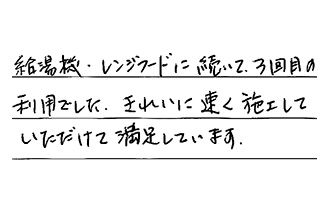 給湯機・レンジフードに続いて、3回目の
利用でした。きれいに速く施工して
いただけて満足しています。